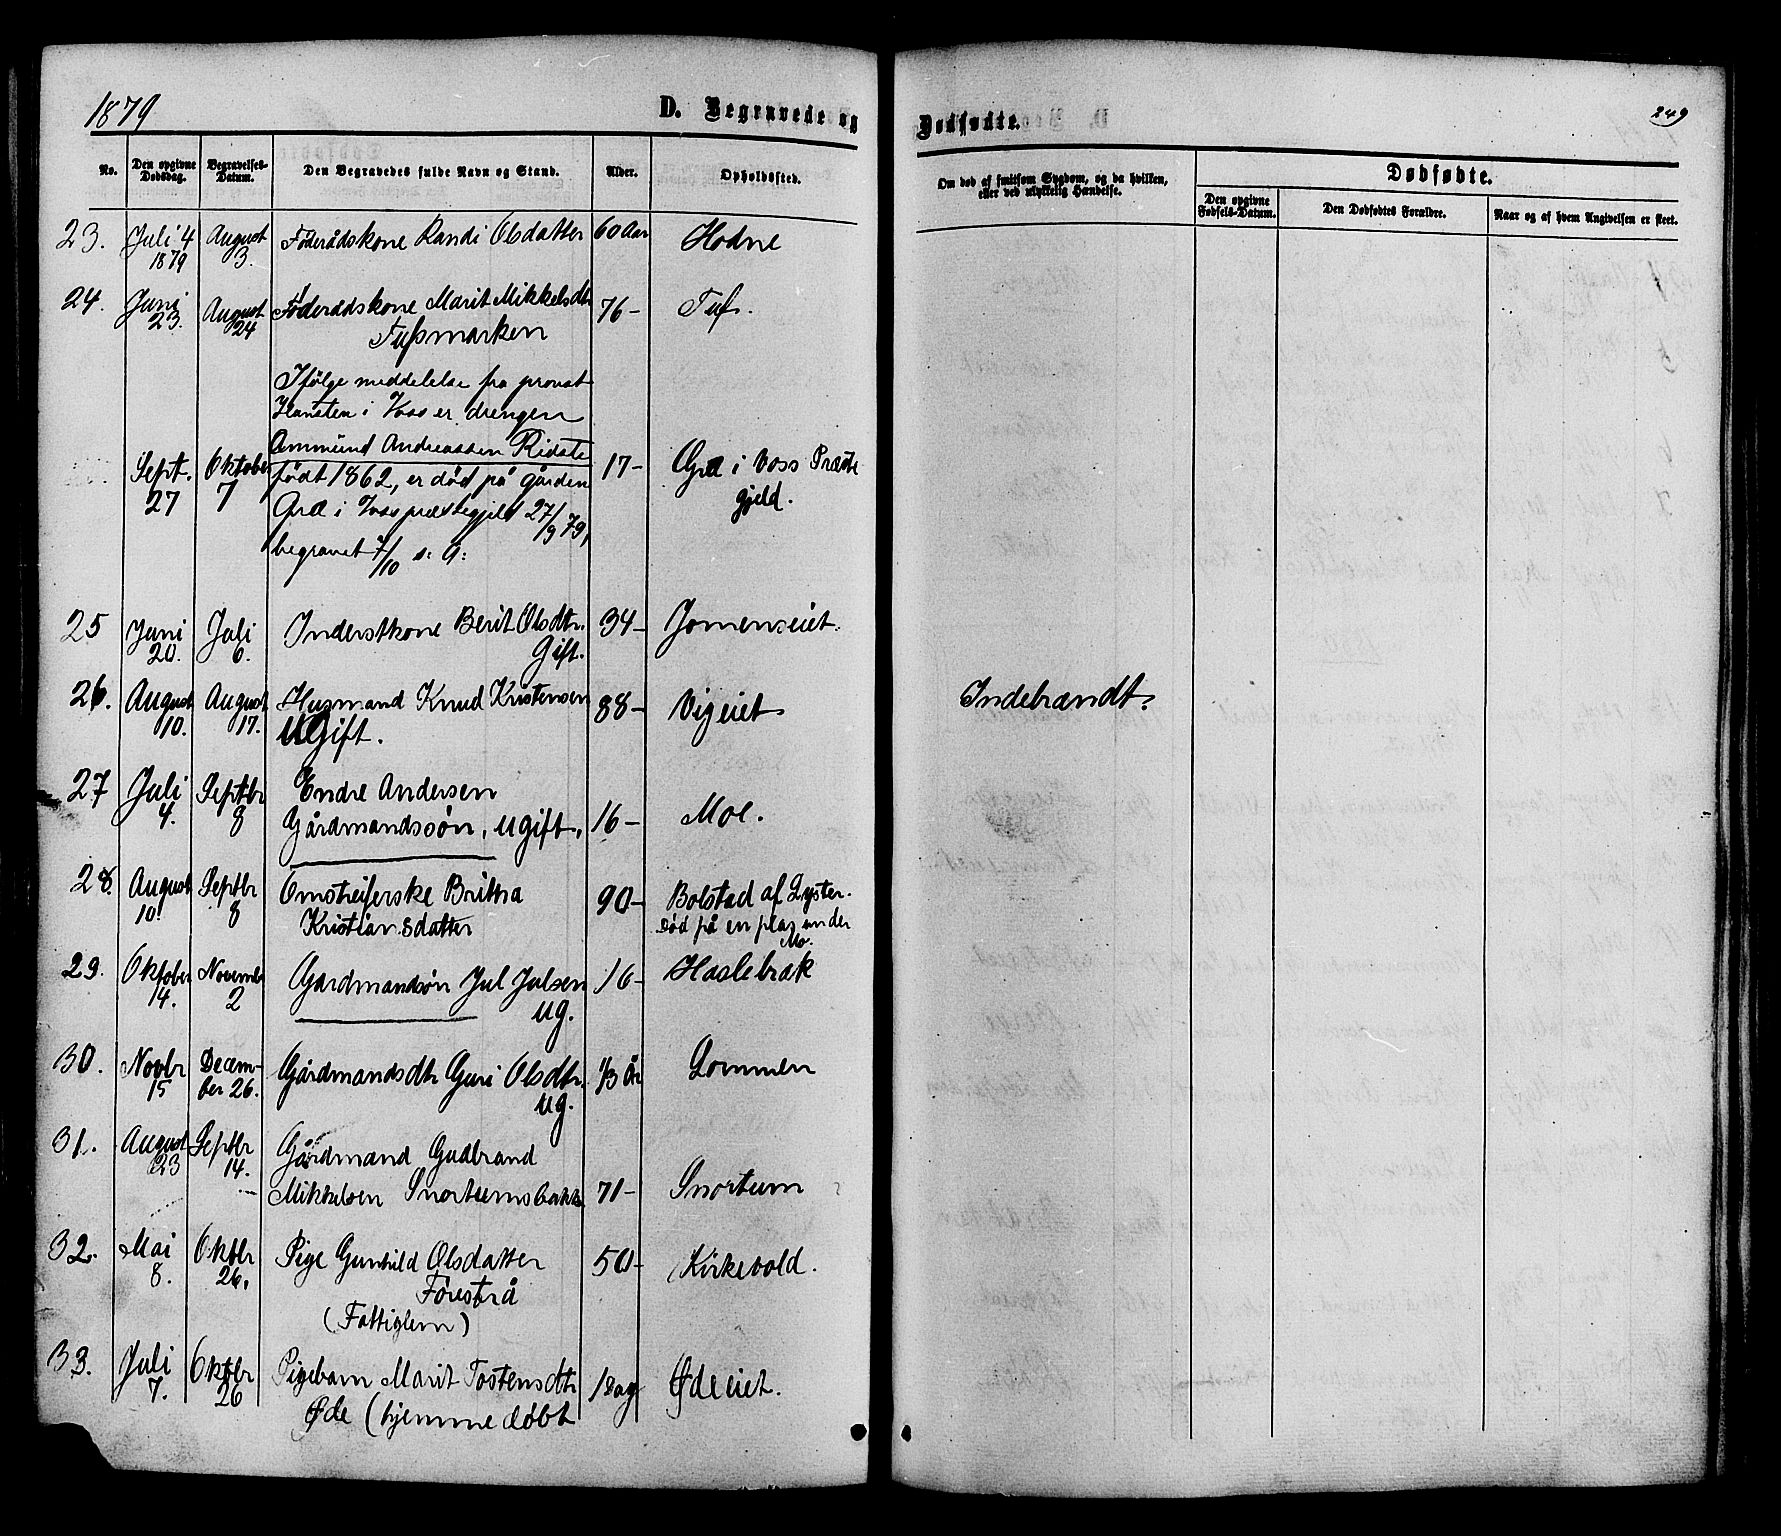 1879
D. Begravede og
Dødfødte.
249
No.
Den opgivne Dødsdag.
Begravelses-Datum.
Den Begravedes fulde Navn og Stand.
Alder.
Opholdssted.
Om død af smitsom Sygdom, og da hvilken, eller ved ulykkelig Hændelse.
Dødfødte.
Den opgivne Fødsels-Datum.
Den Dødfødtes Forældre.
Naar og af hvem Angivelsen er skeet.
23. Juli 4 August Föderådskone Randi Olsdatter 60 Aar Hodne
1879 3.
24. Juni August Föderådskone Marit Mikkelsdtr 76- Tuf.
23. 24 Tufsmarken
Ifölge meddelelse fra provst
i Voss er drengen
Ammund Andreassen Ridste
Sept. Oktober født 1862, er död på gården 17- Græ i Voss Præste
27 7 Græ i Voss præstegjeld 27/9 79, gjeld.
begravet 7/10 s: A:
25 Juni Juli Inderstkone Berit Olsdtr. 34- Jomenseiet.
20. 6. Gift.
26. August August Husmand Knud Kristensen 88- Vigeiet Indebrændt.
10. 17. UGift.
27 Juli Septbr Endre Andersen
4. 8 Gårdmandssön, ugift, 16- Moe.
28. August Septbr Omstreiferske Brittha 90- Bolstad af Lyster.
10. 8 Kristiansdatter död på en plas under
Mo.
29. Oktober November Gårdmandsön Jul Julsen 16- Haslebræk
14. 2 ug.
30. Novbr Decem- Gårdmandsdtr Guri Olsdtr. 1/3 År Lommen
15 ber 26. ug.
31. August Septbr Gårdmand Gudbrand
23 14. Mikkelsen Snortumsbakk 71- Snortum
32. Mai Oktbr Pige Gunhild Olsdatter 50- Kirkevold.
8. 26. Förestrå
(Fattiglem)
33. Juli Oktbr Pigebarn Marit Tostensdtr 1 Dag Ødeeiet.
7. 26 Øde (hjemmedöbt